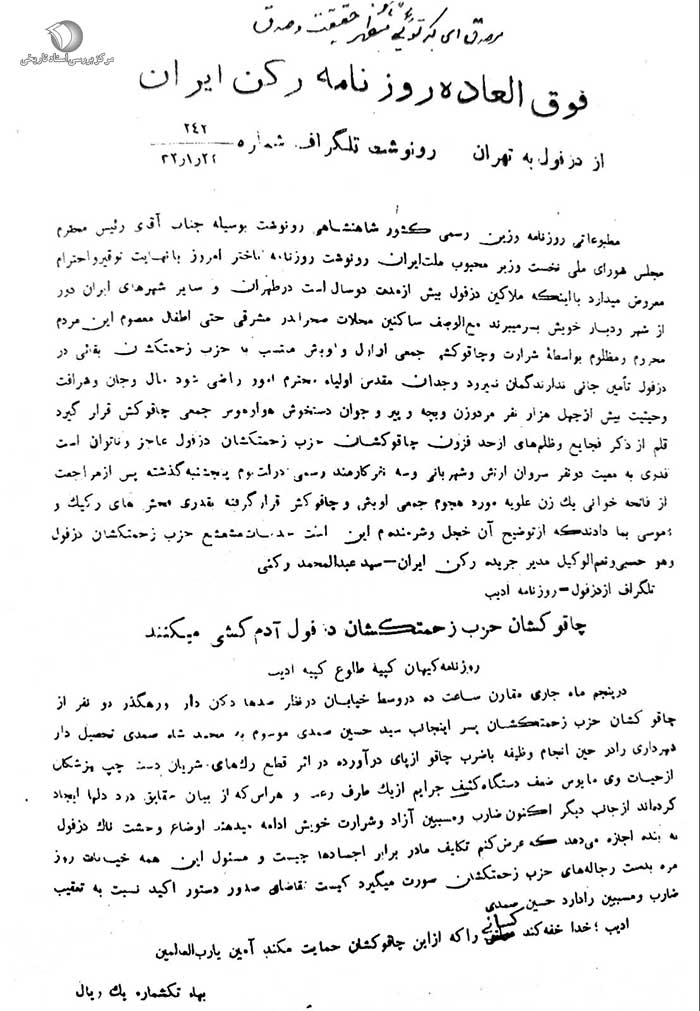 مرکز بررسی اسناد تاریخی
مصدق ای که توئی مظهر حقیقت و صدق
فوق العاده روزنامه رکن ایران
از دزفول به تهران رونوشت تلگراف شماره ۲۴۲
۳۲/۱/۲۲
مطبوعاتی روزنامه وزین رسمی کشور شاهنشاهی رونوشت بوسیله جناب آقای رئیس محترم
مجلس شورای ملی نخست وزیر محبوب ملت ایران رونوشت روزنامه باختر امروز با نهایت توقیر و احترام
معروض میدارد با اینکه ملاکین دزفول بیش از مدت دو سال است در طهران و سایر شهرهای ایران دور
از شهر و دیار خویش بسر میبرند مع الوصف ساکنین محلات صحرابدر مشرقی حتی اطفال معصوم این مردم
محروم و مظلوم بواسطهٔ شرارت و چاقوکشی جمعی اراذل و اوباش منتسب به حزب زحمتکشان بقائی در
دزفول تأمین جانی ندارند گمان نمیرود وجدان مقدس اولیاء محترم امور راضی شود مال و جان و شرافت
وحیثیت بیش از چهل هزار نفر مرد و زن و بچه و پیر و جوان دستخوش هوا و هوس جمعی چاقوکش قرار گیرد
قلم از ذکر فجایع و ظلم‌های از حد فزون چاقوکشان حزب زحمتکشان دزفول عاجز و ناتوان است
فدوی به معیت دو نفر سروان ارتش و شهربانی و سه نفر کارمند رسمی دولت یوم پنجشنبه گذشته پس از مراجعت
از فاتحه خوانی یک زن علویه مورد هجوم جمعی اوباش و چاقوکش قرار گرفته بقدری فحش های رکیک و
ناموسی بما دادند که از توضیح آن خجل و شرمنده‌ام این است حزب زحمتکشان دزفول
وهو حسبی ونعم الوکیل مدیر جریده رکن ایران — سید عبدالمحمد رکنی
تلگراف از دزفول = روزنامه ادیب
چاقوکشان حزب زحمتکشان دزفول آدم کشی میکنند
روزنامه کیهان کپیه طلوع کپیه ادیب
در پنجم ماه جاری مقارن ساعت ده در وسط خیابان در انظار صدها دکان دار و رهگذر دو نفر از
چاقوکشان حزب زحمتکشان پسر اینجانب سید حسین صمدی موسوم به محمد شاه صمدی تحصیل دار
شهرداری را در حین انجام وظیفه با ضرب چاقو از پای در آورده در اثر قطع رگ‌های شریان دست چپ پزشکان
از حیات وی مایوس ضعف دستگاه کشف جرایم از یک طرف رعب و هراس که از بیان حقایق در دلها ایجاد
کرده‌اند از جانب دیگر اکنون ضارب و مسببین آزاد و شرارت خویش ادامه میدهند اوضاع وحشت ناک دزفول
به بنده اجازه می‌دهد که عرض کنم تکلیف ما در برابر اجسادها چیست و مسئول این همه روز
مره بدست رجاله‌های حزب زحمتکشان صورت میگیرد کیست تقاضای صدور دستور اکید نسبت به تعقیب
ضارب و مسببین را دارد حسین صمدی
ادیب ؛ خدا خفه کند کسانی را که از این چاقوکشان حمایت میکنند آمین یارب العالمین
بهاء تکشماره یک ریال